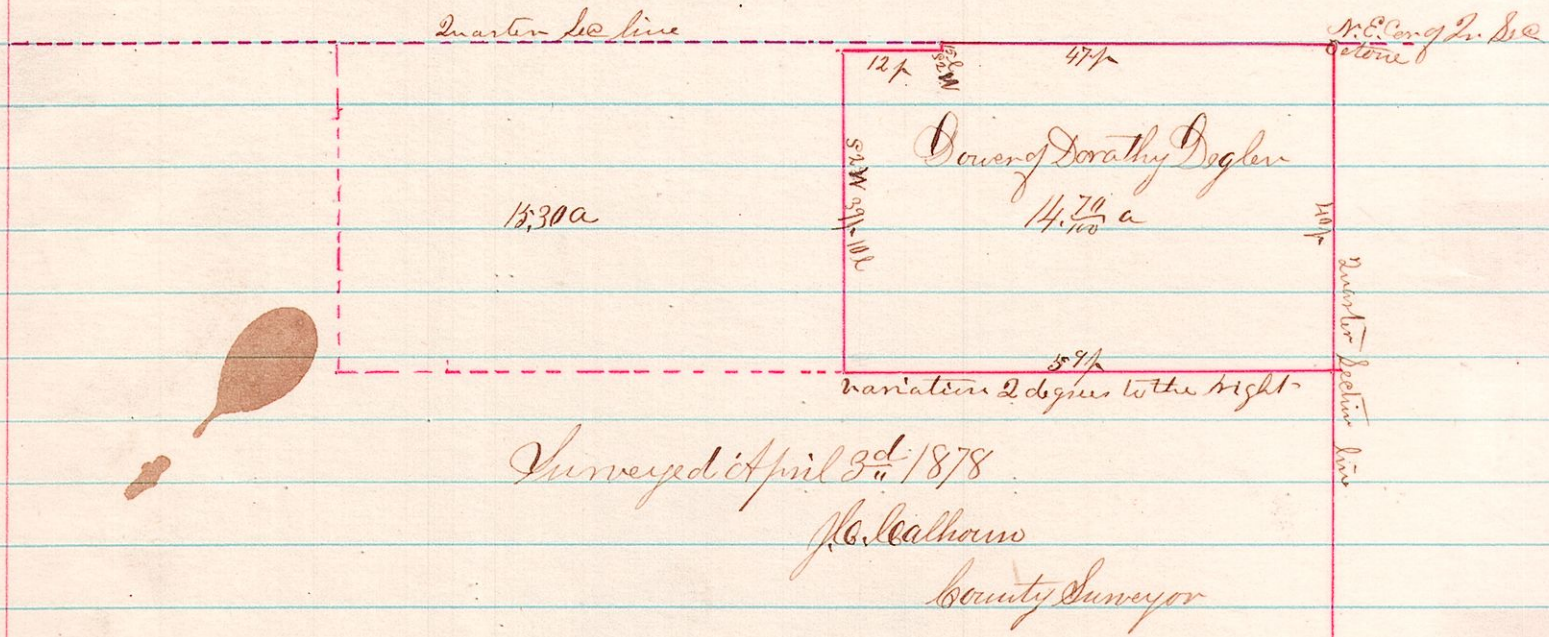 Quarter Sec line
N.E. Cor of Qr. Sec
Stone
12 p
15 l
S2W
47 p
Dower of Dorathy Degler
14. 70/100 a
15,30 a
S2W 39 p 10 l
40 p
Quarter Section line
59 p
variation 2 degrees to the right
Surveyed April 3d 1878
J.C. Calhoun
County Surveyor